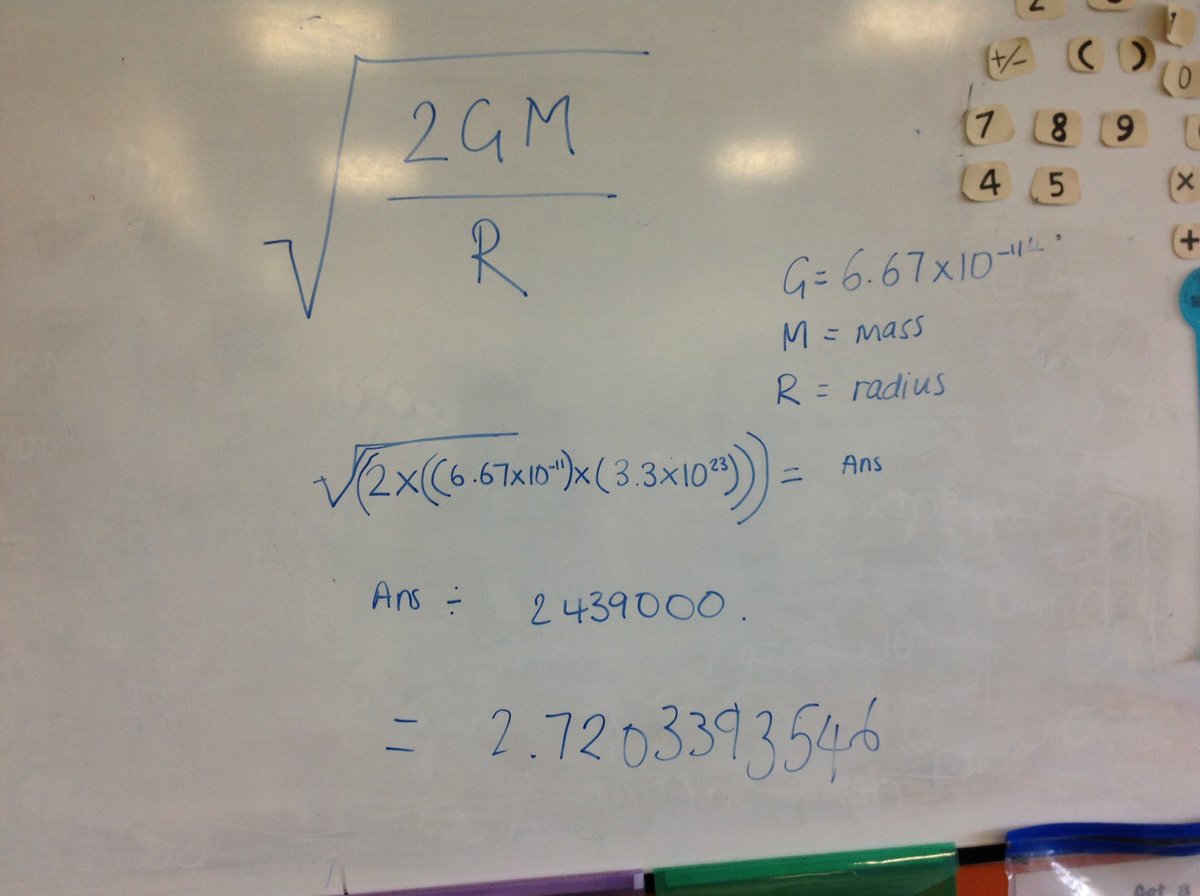 2
+/- ( )
0
7 8 9
4 5 ×
+
√(2GM/R)
G = 6.67×10⁻¹¹
M = mass
R = radius
√(2×((6.67×10⁻¹¹)×(3.3×10²³))) = Ans
Ans ÷ 2439000.
= 2.7203393546